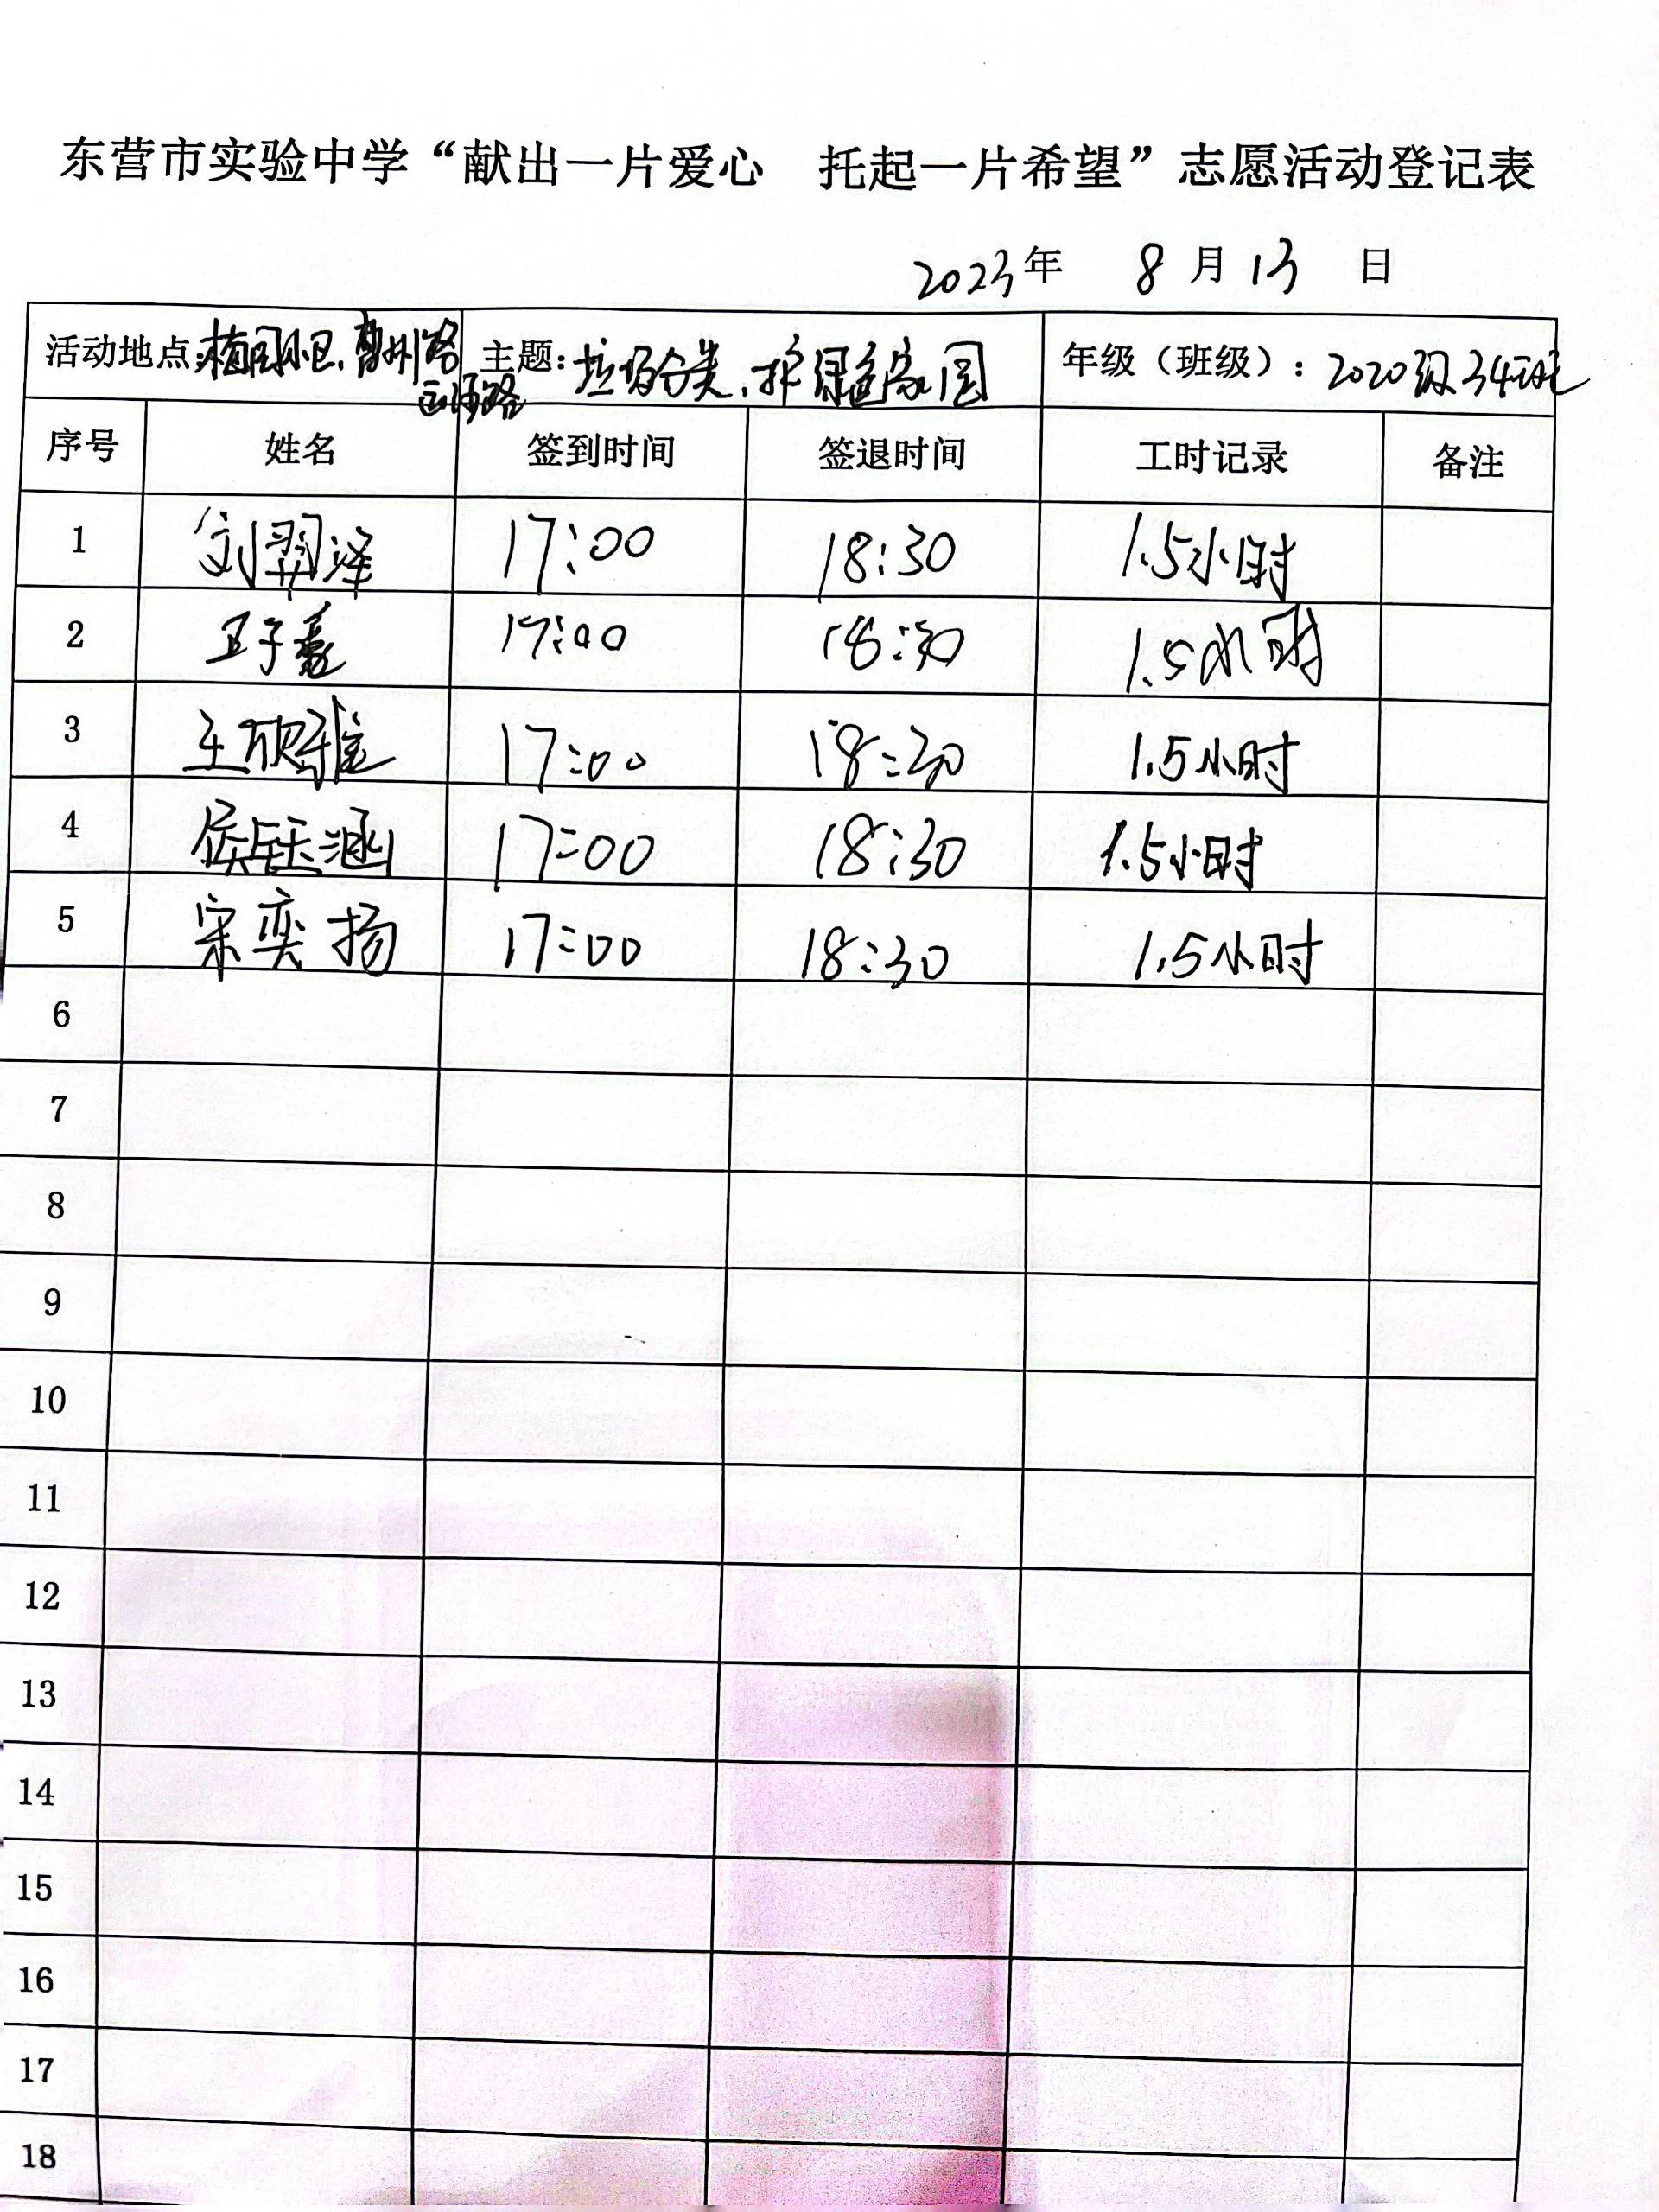 东营市实验中学“献出一片爱心 托起一片希望”志愿活动登记表
2023年 8月13日
活动地点: 主题: 垃圾分类、护绿色家园 年级（班级）: 2020级34班
序号 姓名 签到时间 签退时间 工时记录 备注
1 刘羿泽 17:00 18:30 1.5小时
2 子 17:00 18:30 1.5小时
3 王欣雅 17:00 18:30 1.5小时
4 侯钰涵 17:00 18:30 1.5小时
5 宋奕扬 17:00 18:30 1.5小时
6
7
8
9
10
11
12
13
14
15
16
17
18